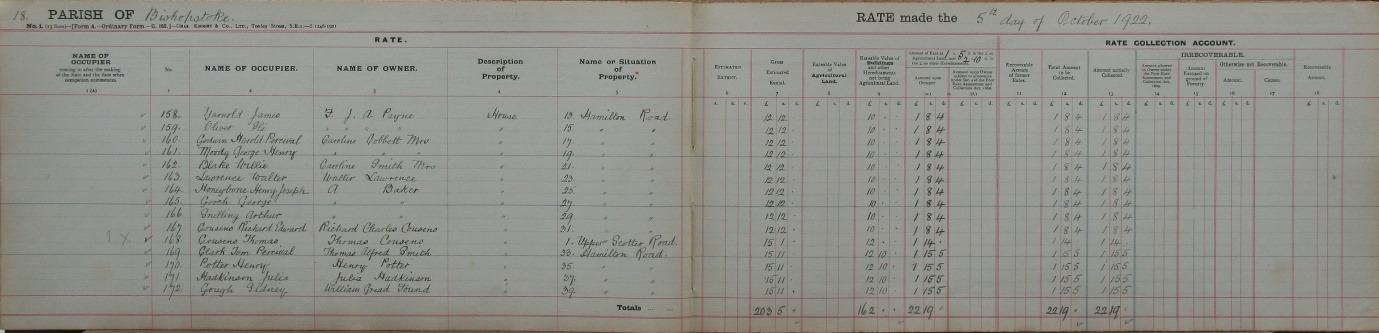 18. PARISH OF Bishopstoke. RATE made the 5th day of October 1922.
RATE.
RATE COLLECTION ACCOUNT.
NAME OF OCCUPIER No. NAME OF OCCUPIER. NAME OF OWNER. Description of Property. Name or Situation of Property. ESTIMATED EXTENT. Gross Estimated Rental. Rateable Value of Agricultural Land. Rateable Value of Buildings and other Hereditaments not being Agricultural Land. Recoverable Arrears of former Rates. Total Amount to be Collected. Amount actually Collected. IRRECOVERABLE. Otherwise not Recoverable. Amount. Causes. Recoverable Amount.
158. Yarnold James F. J. A Payne House 13. Hamilton Road 12 12 10 1 8 4 1 8 4 1 8 4
159. Oliver " " " " 15. " " 12 12 10 1 8 4 1 8 4 1 8 4
160. Godwin Harold Percival Caroline Cobbett Mrs " 17. " " 12 12 10 1 8 4 1 8 4 1 8 4
161. Moody George Henry " " " 19. " " 12 12 10 1 8 4 1 8 4 1 8 4
162. Blake Willie Caroline Smith Mrs " 21. " " 12 12 10 1 8 4 1 8 4 1 8 4
163. Lawrence Walter Walter Lawrence " 23. " " 12 12 10 1 8 4 1 8 4 1 8 4
164. Honeybone Henry Joseph A Baker " 25. " " 12 12 10 1 8 4 1 8 4 1 8 4
165. Gooch George " " " 27. " " 12 12 10 1 8 4 1 8 4 1 8 4
166. Snelling Arthur " " " 29. " " 12 12 10 1 8 4 1 8 4 1 8 4
167. Cousens Richard Edward Richard Charles Cousens " 31. " " 12 12 10 1 8 4 1 8 4 1 8 4
168. Cousens Thomas Thomas Cousens " 1. Upper Scotter Road. 15 1 12 1 14 1 14 1 14
169. Clark Tom Percival Thomas Alfred Smith " 33. Hamilton Road. 15 11 12 10 1 15 5 1 15 5 1 15 5
170. Potter Henry Henry Potter " 35. " " 15 11 12 10 1 15 5 1 15 5 1 15 5
171. Hadkinson Julia Julia Hadkinson " 37. " " 15 11 12 10 1 15 5 1 15 5 1 15 5
172. Gough Sidney William Found " 39. " " 15 11 12 10 1 15 5 1 15 5 1 15 5
Totals 203 5 162 22 19 22 19 22 19